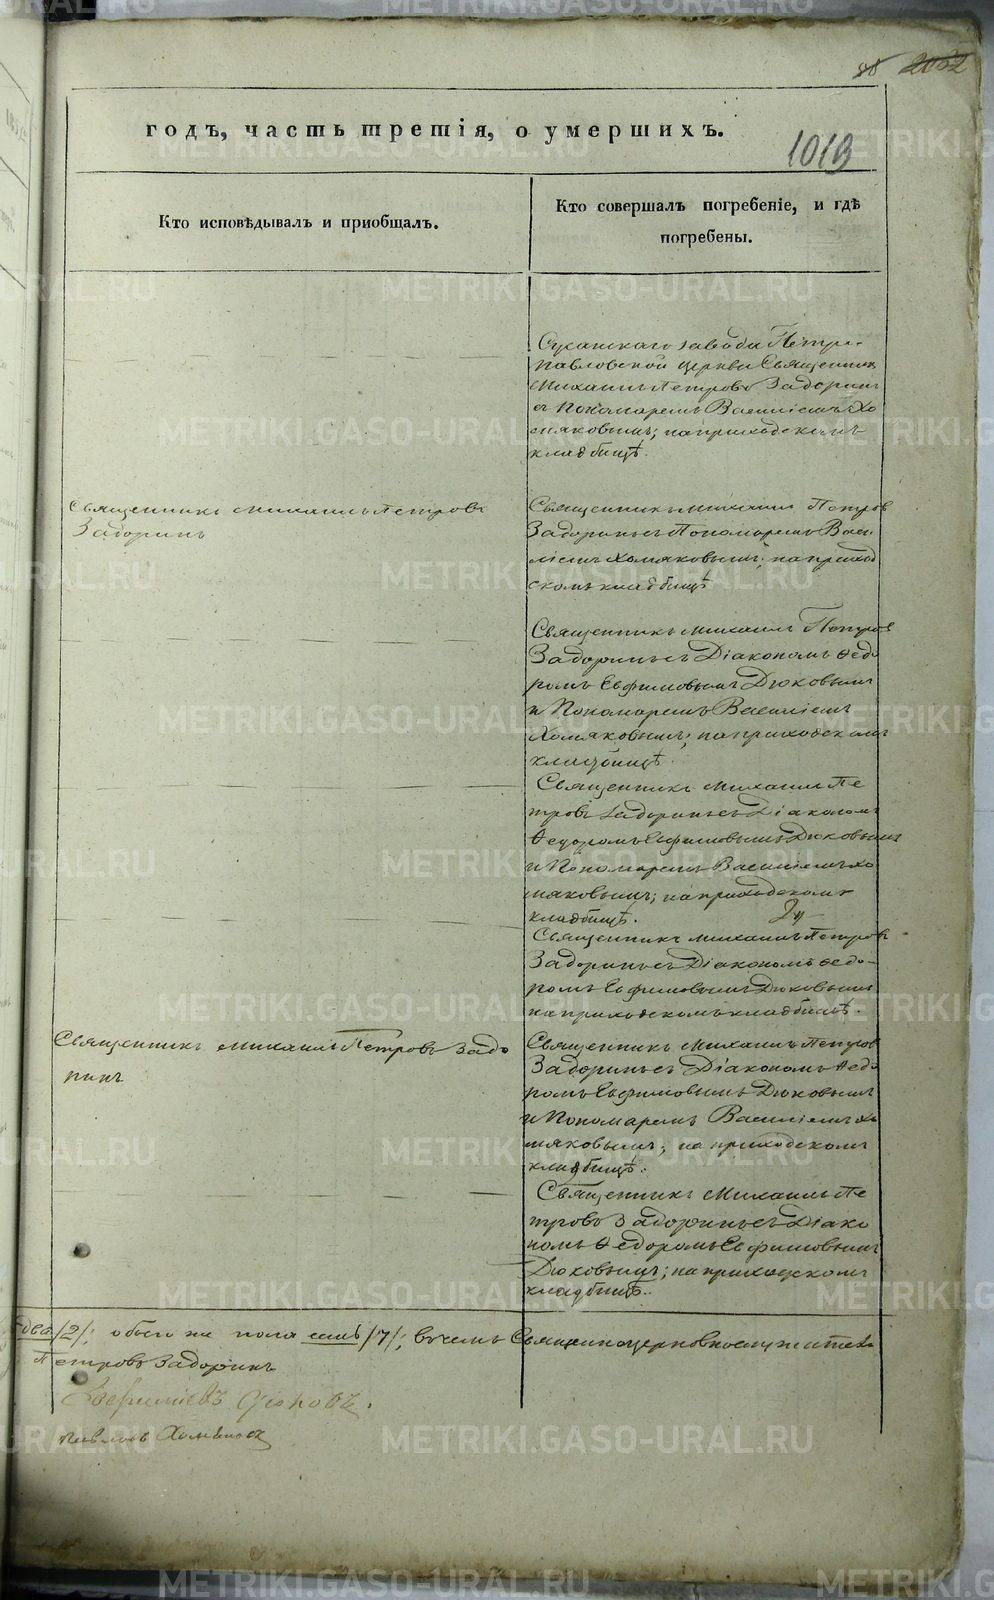 88 2032
годъ, часть третія, о умершихъ.
1019
Кто исповѣдывалъ и приобщалъ.
Кто совершалъ погребеніе, и гдѣ
погребены.
завода Петро-
павловской церкви Священникъ
Михаилъ Петровъ Задоринъ
съ Пономаремъ Василіемъ Хо
мяковымъ; на приходскомъ
кладбищѣ.
Священникъ Михаилъ Петровъ
Задоринъ
Священникъ Михаилъ Петров
Задоринъ съ Пономаремъ Васи
ліемъ Хомяковымъ; на приход
скомъ кладбищѣ
Священникъ Михаилъ Петров
Задоринъ съ Діакономъ Ѳедо
ромъ Евфимовымъ Дюковымъ
и Пономаремъ Василіемъ
Хомяковымъ; на приходскомъ
кладбищѣ.
Священникъ Михаилъ Пе
тровъ Задоринъ съ Діакономъ
Ѳедоромъ Евфимовымъ Дюковымъ
и Пономаремъ Василіемъ Хо
мяковымъ; на приходскомъ
кладбищѣ.
Священникъ Михаилъ Петровъ
Задоринъ съ Діакономъ Ѳедо-
ромъ Евфимовымъ Дюковымъ
на приходскомъ кладбищѣ.
Священникъ Михаилъ Петровъ Задо
ринъ
Священникъ Михаилъ Петров
Задоринъ съ Діакономъ Ѳедо
ромъ Евфимовымъ Дюковымъ
и Пономаремъ Василіемъ Хо
мяковымъ; на приходскомъ
кладбищѣ.
Священникъ Михаилъ Пе
тровъ Задоринъ съ Діако
номъ Ѳедоромъ Евфимовымъ
Дюковымъ; на приходскомъ
кладбищѣ.
два /2/; обоего же пола семь /7/; въ чемъ Священноцерковнослужители
Петровъ Задоринъ
Дюковъ.
Хомяковъ
METRIKI.GASO-URAL.RU